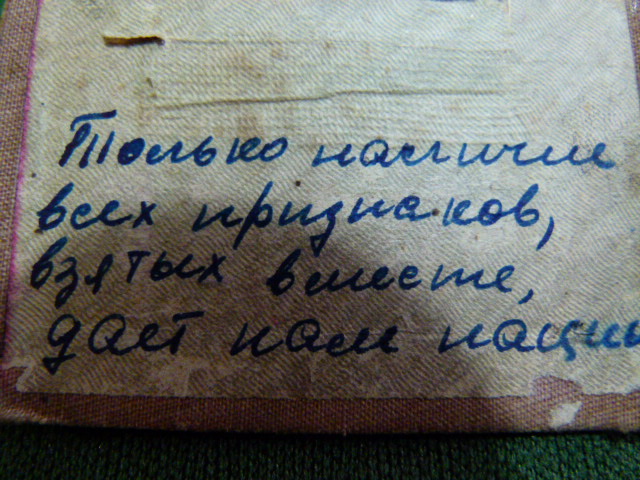 Только наличие
всех признаков,
взятых вместе,
дает нам наци